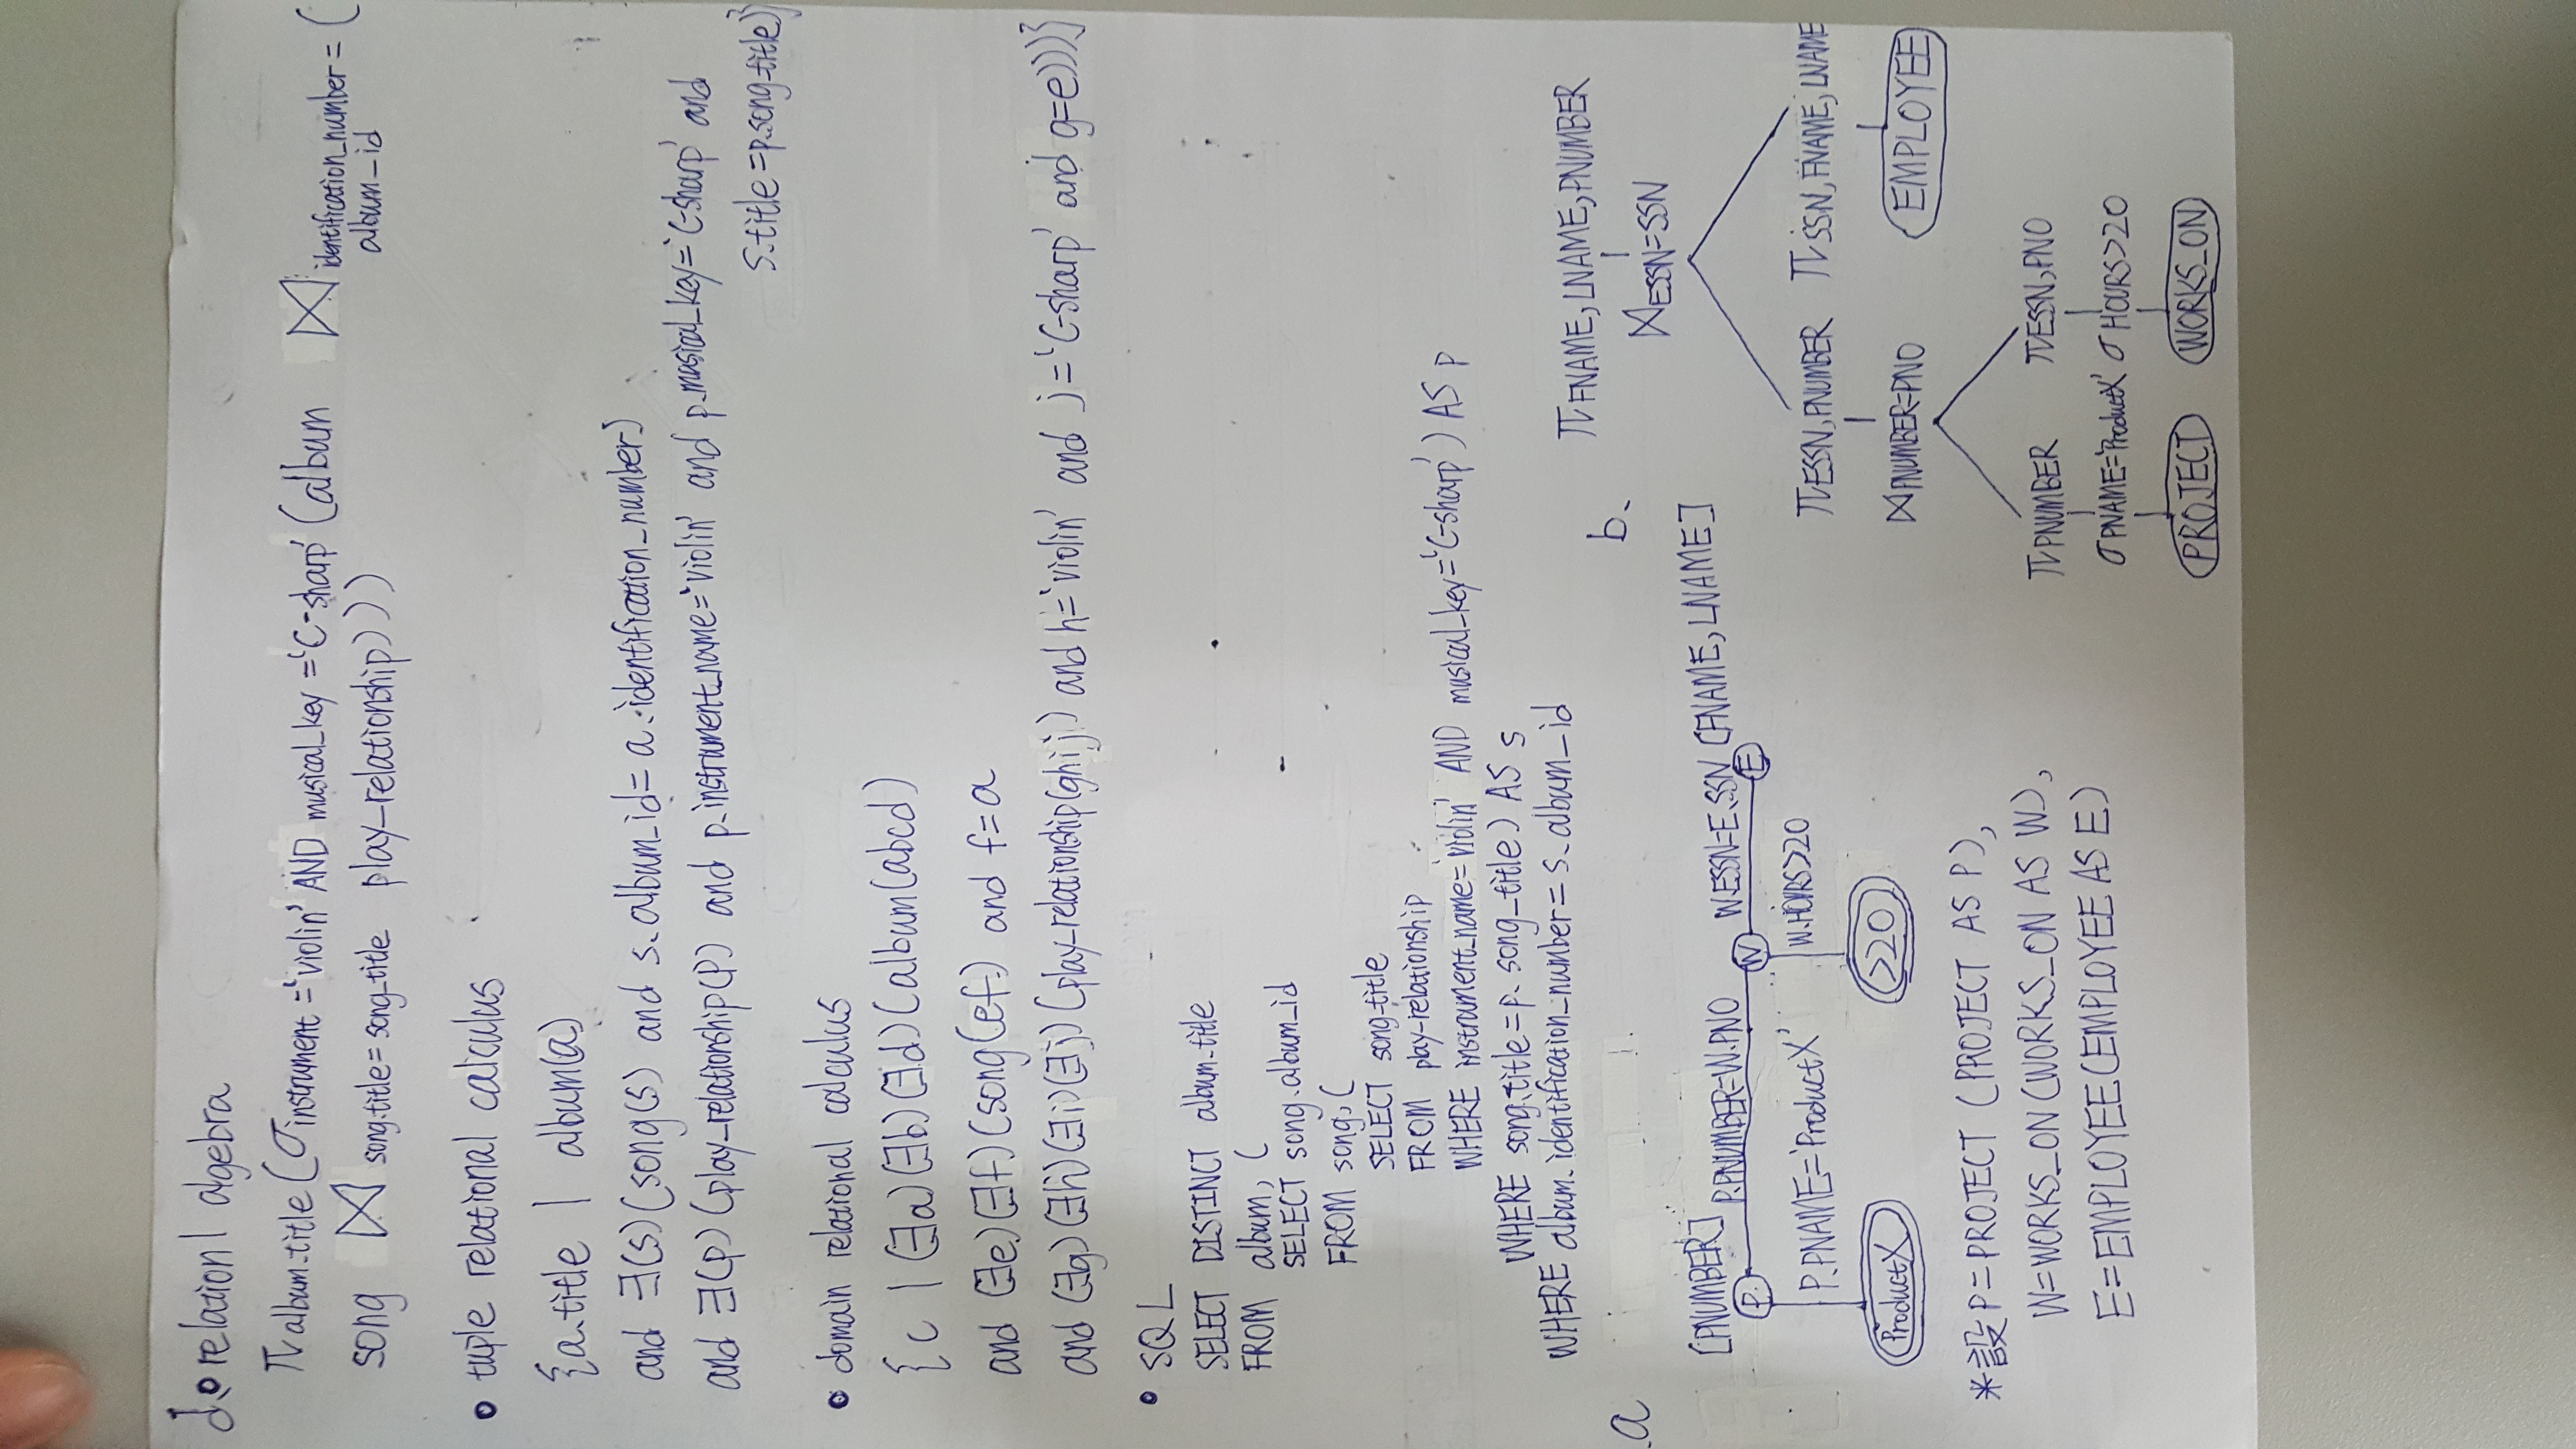 d. • relationl algebra
π album.title (σ instrument = 'violin' AND musical_key = 'C-sharp' (album ⋈ identification_number = album_id (
song ⋈ song.title = song_title play_relationship)))
• tuple relational calculus
{a.title | album(a)
and ∃(s)(song(s) and s.album_id = a.identification_number)
and ∃(p)(play_relationship(p) and p.instrument_name = 'violin' and p.musical_key = 'C-sharp' and
s.title = p.song_title)}
• domain relational calculus
{c | (∃a)(∃b)(∃d)(album(abcd)
and (∃e)(∃f)(song(ef) and f=a
and (∃g)(∃h)(∃i)(∃j)(play_relationship(ghij) and h='violin' and j='C-sharp' and g=e)))}
• SQL
SELECT DISTINCT album.title
FROM album, (
SELECT song.album_id
FROM song, (
SELECT song_title
FROM play_relationship
WHERE instrument_name='violin' AND musical_key='C-sharp') AS p
WHERE song.title = p.song_title) AS s
WHERE album.identification_number = s.album_id
.a
[PNUMBER] P.PNUMBER=W.PNO W.ESSN=E.SSN [FNAME, LNAME]
P W E
P.PNAME='ProductX' W.HOURS>20
ProductX >20
*設 P=PROJECT (PROJECT AS P),
W=WORKS_ON (WORKS_ON AS W),
E=EMPLOYEE (EMPLOYEE AS E)
b. π FNAME, LNAME, PNUMBER
⋈ ESSN=SSN
π ESSN, PNUMBER π SSN, FNAME, LNAME
⋈ PNUMBER=PNO EMPLOYEE
π PNUMBER π ESSN, PNO
σ PNAME='ProductX' σ HOURS>20
PROJECT WORKS_ON